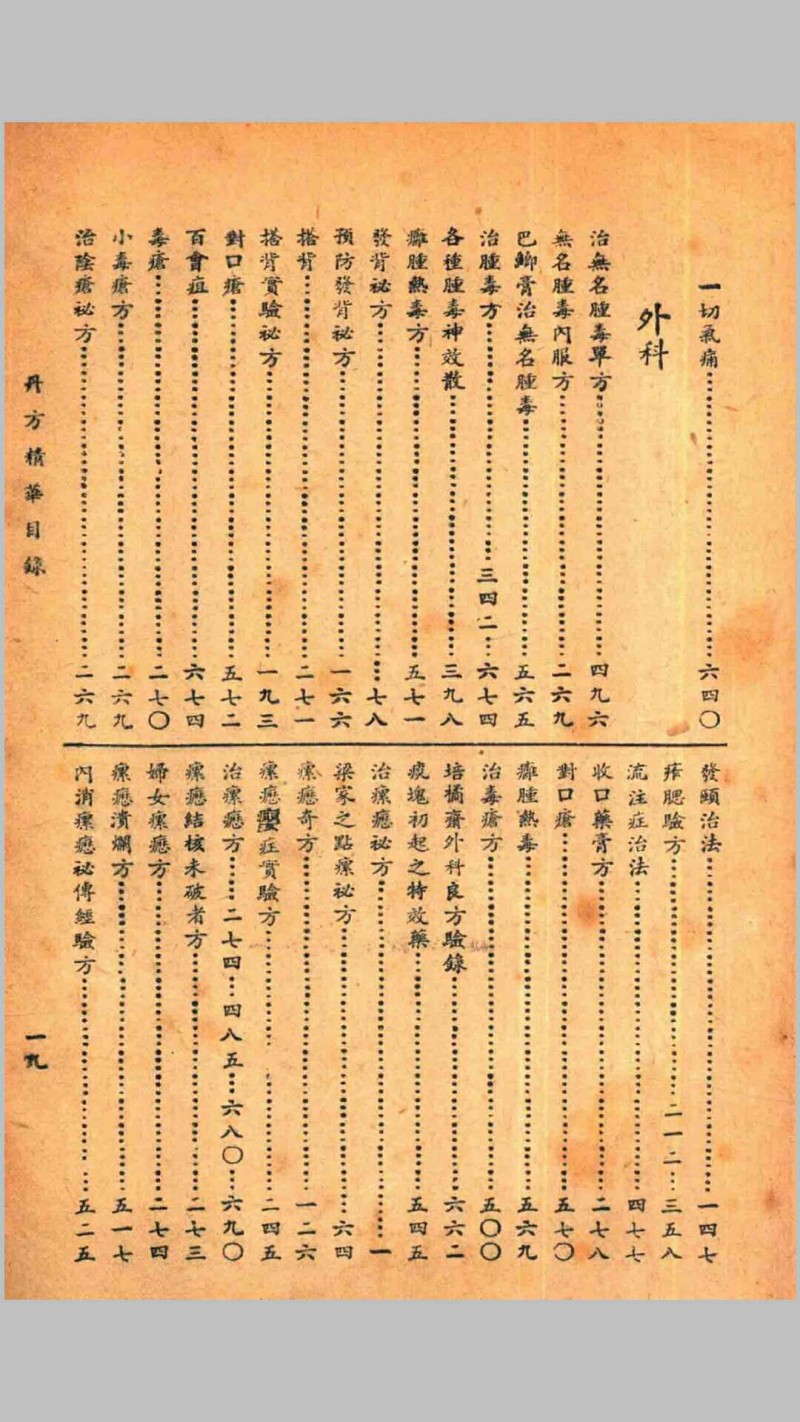 一切氣痛……六四〇
外科
治無名腫毒單方……四九六
無名腫毒內服方……二六九
巴鯽膏治無名腫毒……五六五
治腫毒方……三四二…六七四
各種腫毒神效散……三九八
癰腫熱毒方……五七一
發背祕方……七八
預防發背祕方……一六六
搭背……二七一
搭背實驗祕方……一九三
對口瘡……五七二
百會疽……六七四
毒瘡……二七〇
小毒瘡方……二六九
治陰瘡祕方……二六九
發頤治法……一四七
痄腮驗方……二一二…三五八
流注症治法……四七七
收口藥膏方……二七八
對口瘡……五七〇
癰腫熱毒……五六九
治毒瘡方……五〇〇
培橘齋外科良方驗錄……六六二
痰塊初起之特效藥……五四五
治瘰癧祕方……一
梁家之點瘰祕方……六四
瘰癧奇方……一二六
瘰癧症實驗方……二四五
治瘰癧方……二七四…四八五…六八〇…六九〇
瘰癧結核未破者方……二七三
婦女瘰癧方……二七四
瘰癧潰爛方……五一七
內消瘰癧祕傳經驗方……五二五
丹方精華目錄
一九